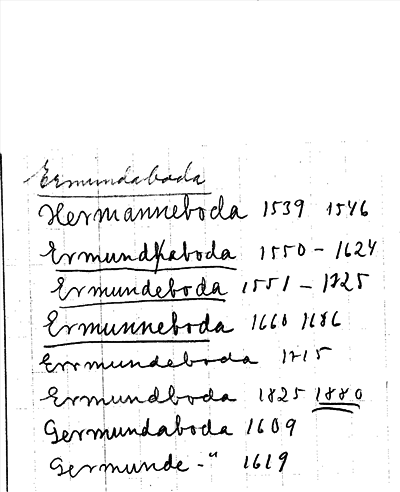 Ermundaboda
Hermanneboda 1539 1546
Ermundkaboda 1550 - 1624
Ermundeboda 1551 - 1725
Ermunneboda 1660 1686
Errmundeboda 1715
Ermundboda 1825 1880
Germundaboda 1609
Germunde -" 1619